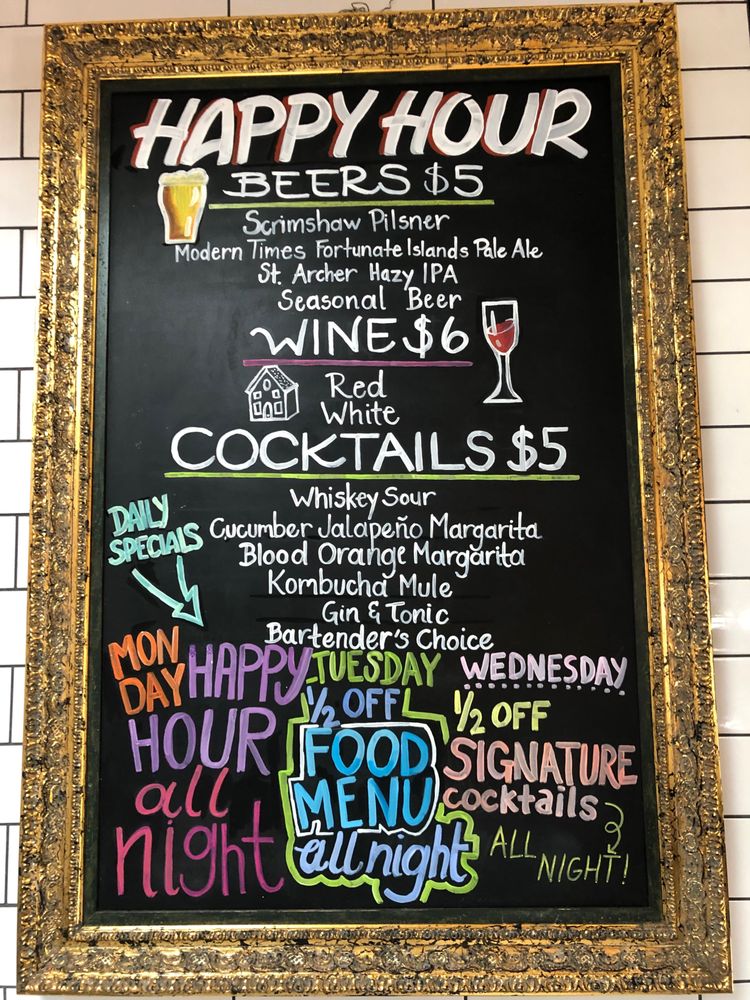 HAPPY HOUR
BEERS $5
Scrimshaw Pilsner
Modern Times Fortunate Islands Pale Ale
St. Archer Hazy IPA
Seasonal Beer
WINE $6
Red
White
COCKTAILS $5
Whiskey Sour
Cucumber Jalapeño Margarita
Blood Orange Margarita
Kombucha Mule
Gin & Tonic
Bartender's Choice
DAILY
SPECIALS
MON
DAY
HAPPY
HOUR
all
night
TUESDAY
1/2 OFF
FOOD
MENU
all night
WEDNESDAY
1/2 OFF
SIGNATURE
cocktails
ALL
NIGHT!